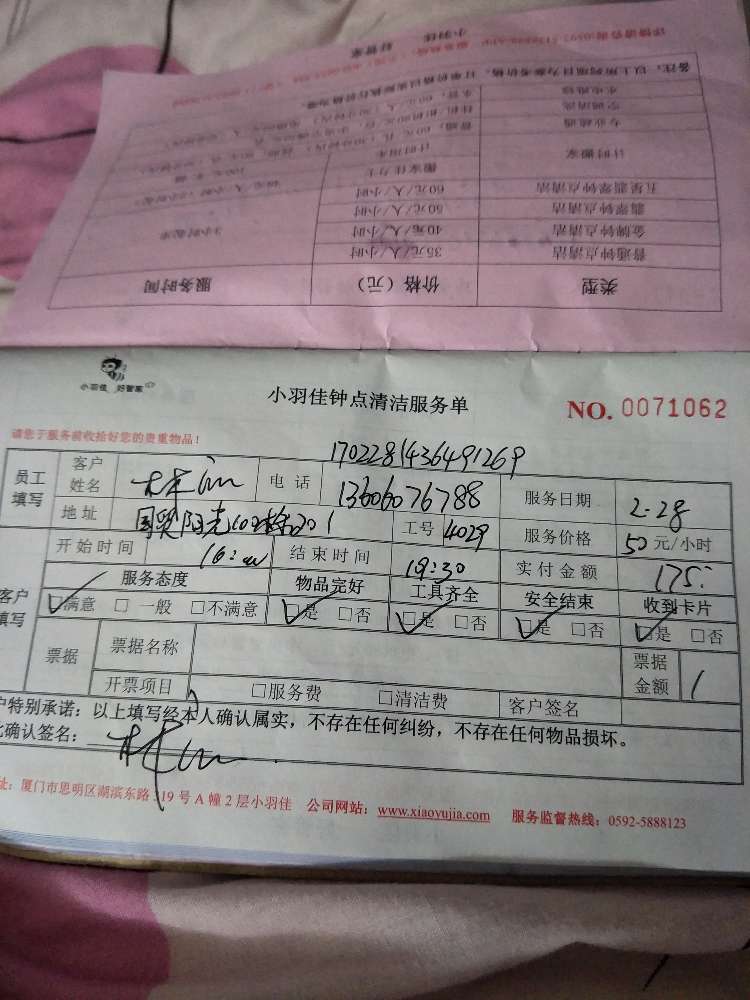 详情请咨询:0592-
小羽佳 好管家
备注：以上所列项目为参考价格，订单价格以实际执行价格为准。
水电维修
空调清洗
专业疏通
计时搬家
搬家佳力士
五星翡翠钟点清洁 60元/人/小时
翡翠钟点清洁 50元/人/小时
金牌钟点清洁 40元/人/小时 3小时起

普通钟点清洁 35元/人/小时
类型 价格（元） 服务时间
小羽佳 好管家
小羽佳钟点清洁服务单
NO. 0071062
请您于服务前收拾好您的贵重物品！
1702281436491269
员工填写 客户姓名 电话 13606076788 服务日期 2.28
地址 国贸阳光 工号 4029 服务价格 50 元/小时
开始时间 16:00 结束时间 19:30 实付金额 175
客户填写 服务态度 物品完好 工具齐全 安全结束 收到卡片
满意 一般 不满意 是 否 是 否 是 否 是 否
票据 票据名称 票据金额
开票项目 服务费 清洁费 客户签名
户特别承诺：以上填写经本人确认属实，不存在任何纠纷，不存在任何物品损坏。
比确认签名：
址：厦门市思明区湖滨东路319号A幢2层小羽佳 公司网站：www.xiaoyujia.com 服务监督热线：0592-5888123